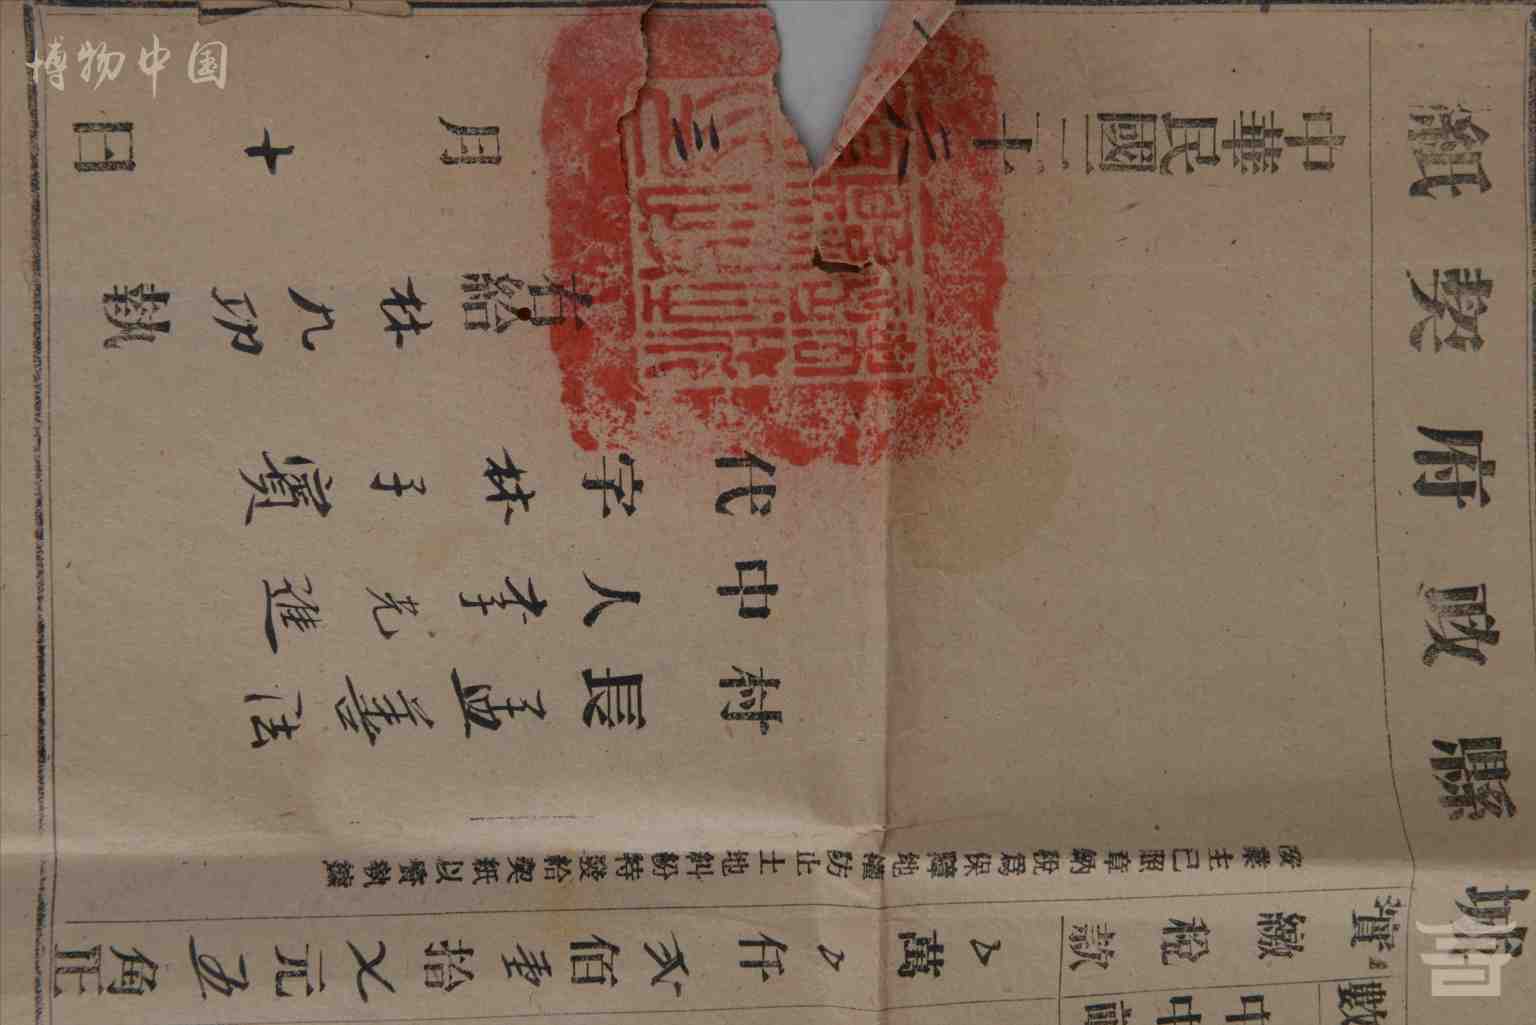 博物中国
城縣政府契紙
繳稅款
〻萬〻仟弍佰壹拾七元五角正
業主已照章納稅爲保障地權防止土地糾紛特發給契紙以資執據
村長孟善法
中人李光進
代字林子賓
右給林九功執
中華民國三十六 三月十日